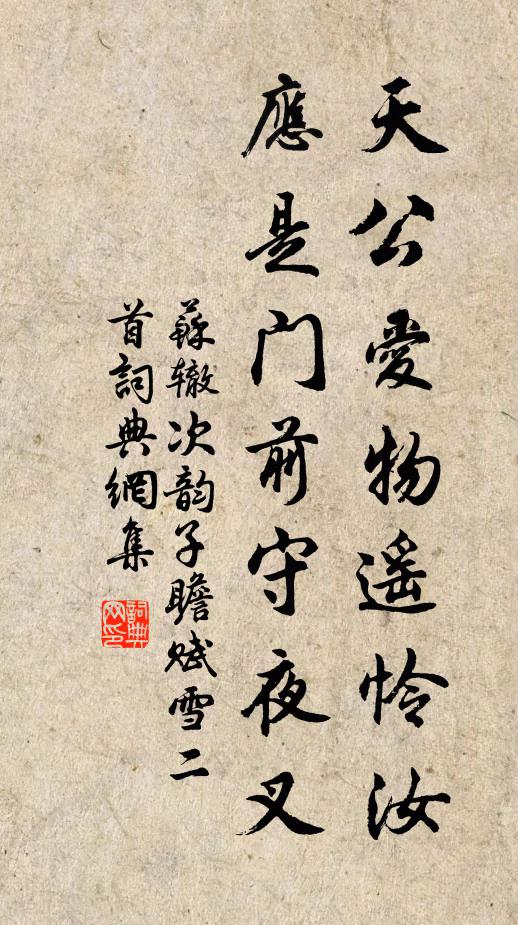 天公愛物遥怜汝
應是門前守夜叉
蘇辙次韵子瞻赋雪二
首詞典網集
詞典
网印